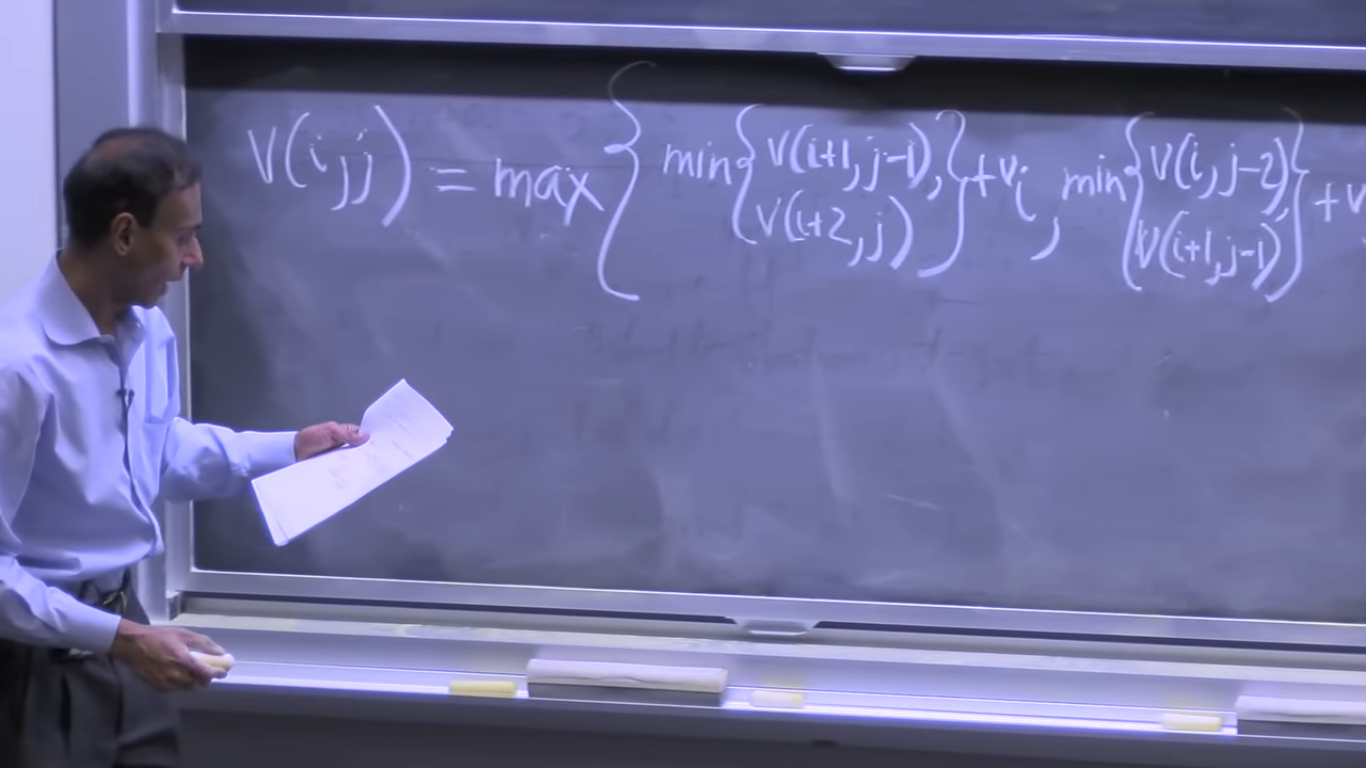 V(i,j) = max { min { V(i+1,j-1), V(i+2,j) } + v_i , min { V(i,j-2), V(i+1,j-1) } + v